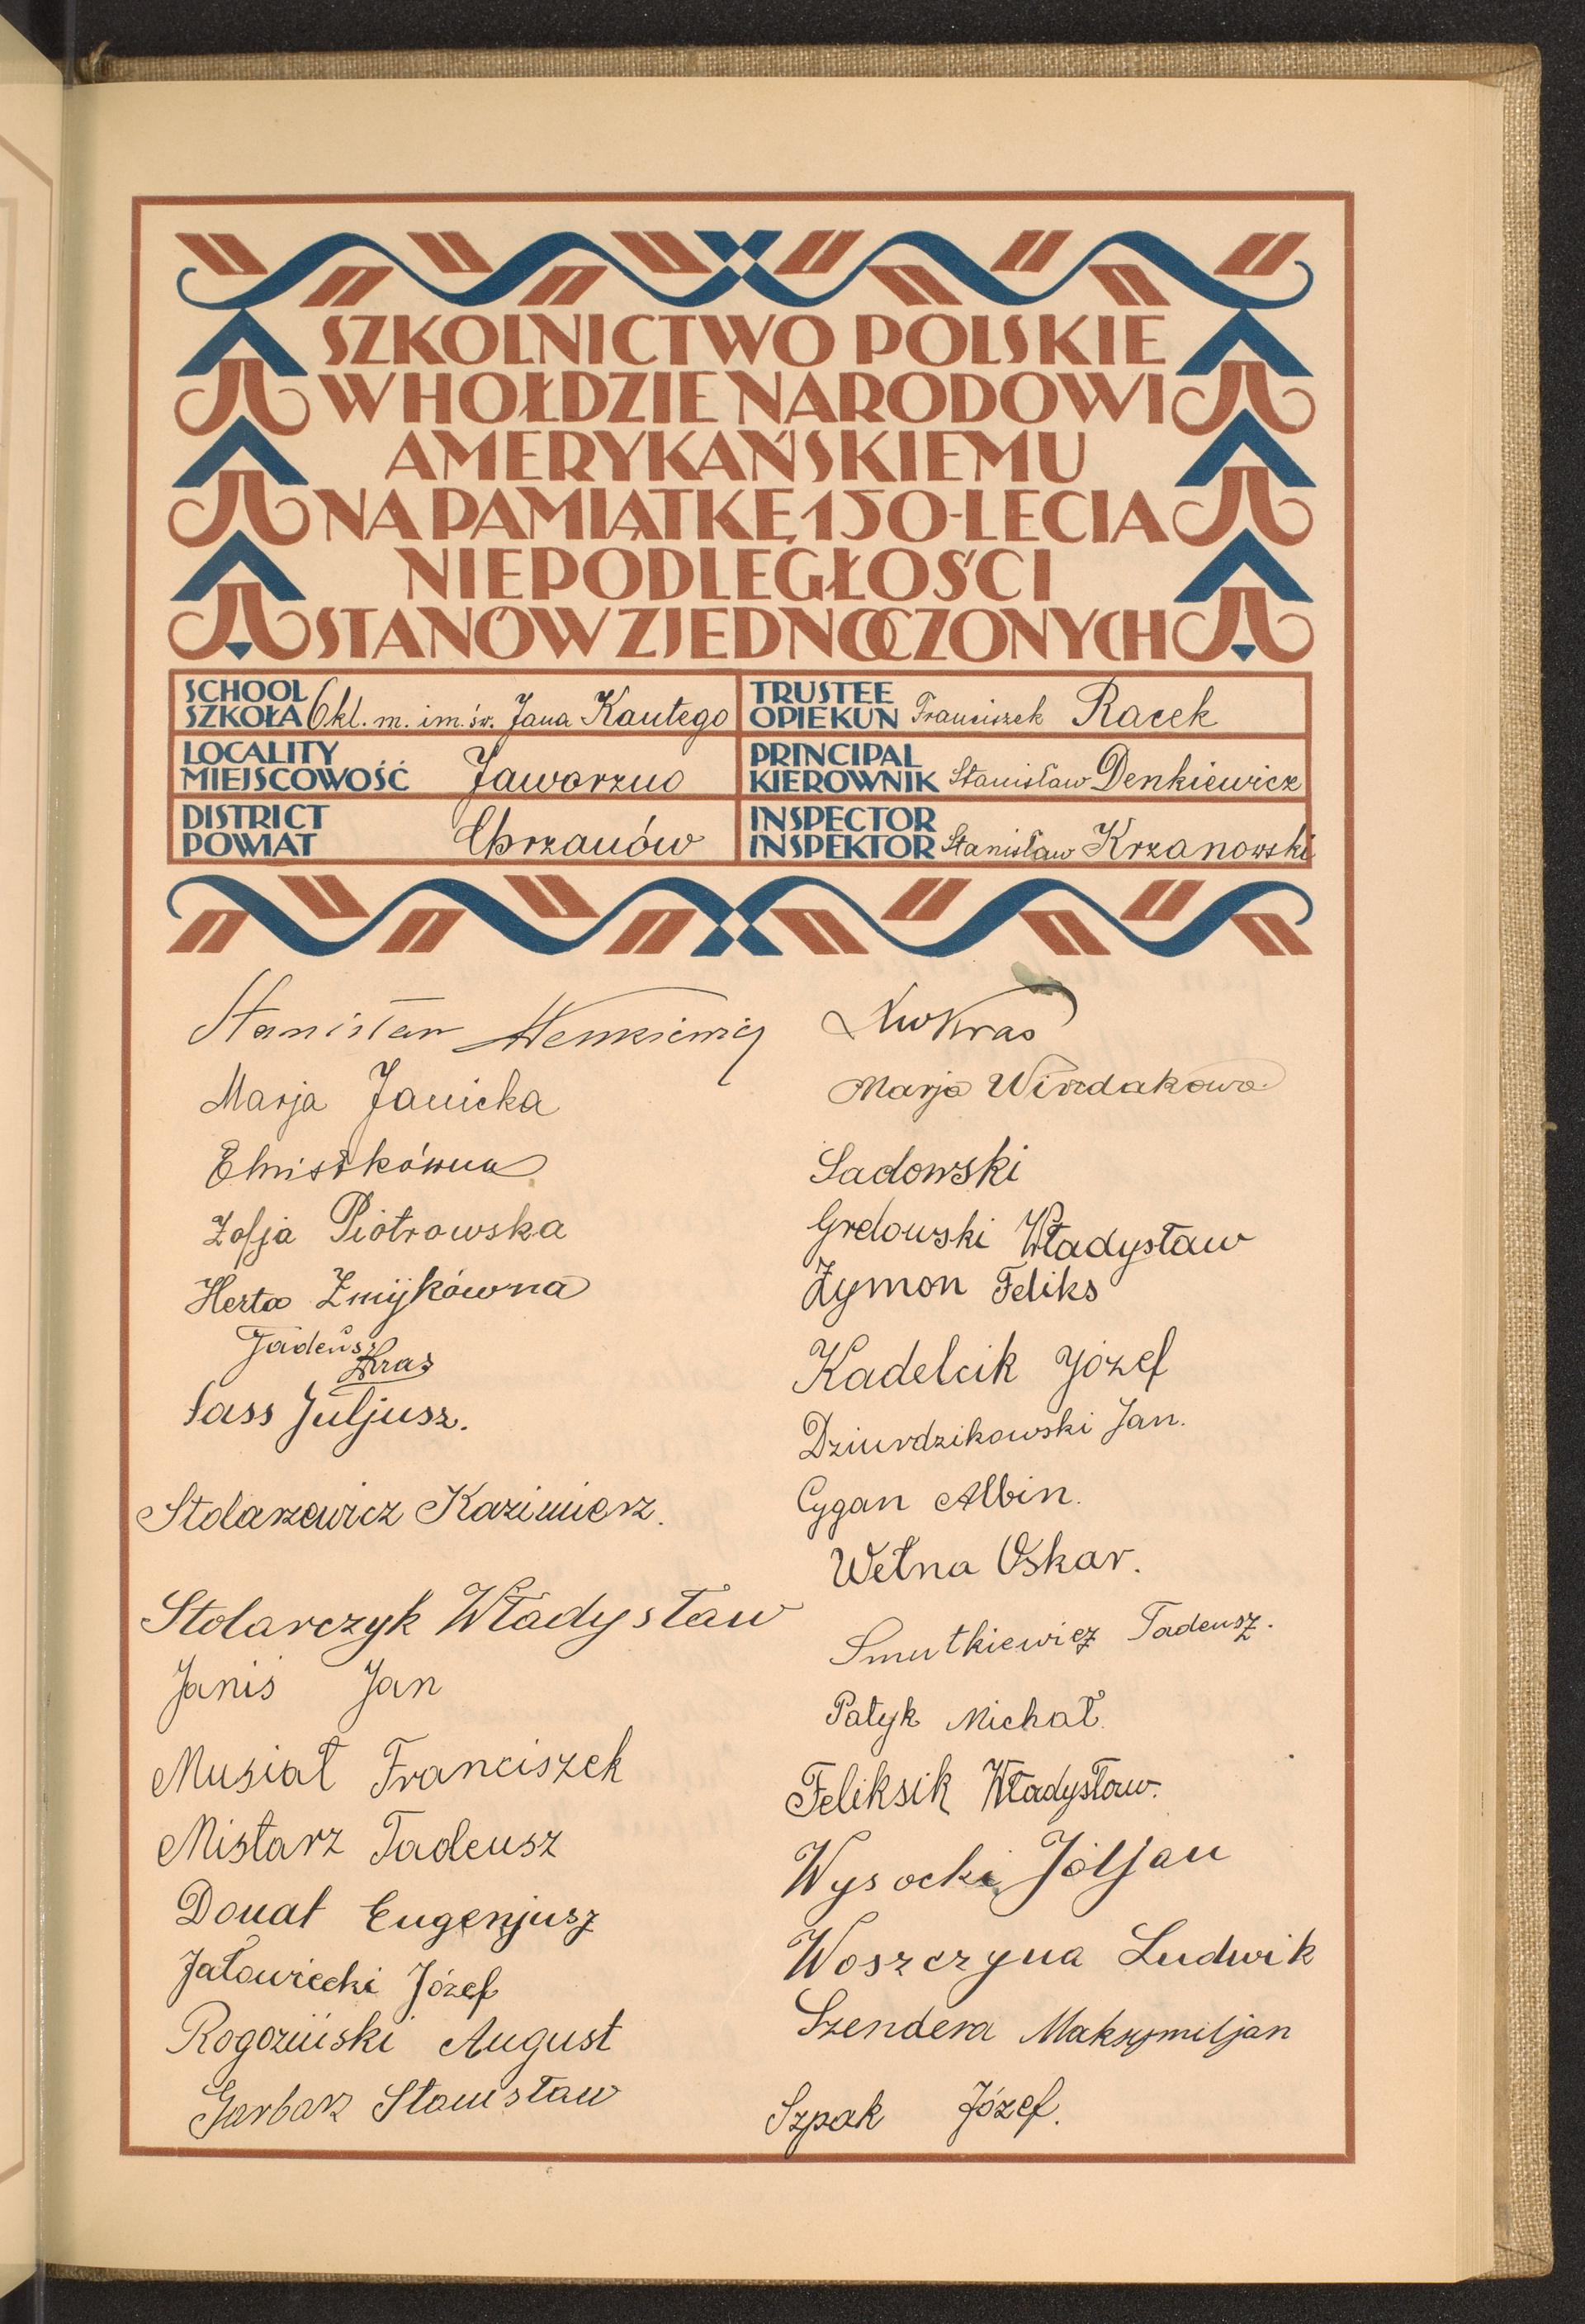 SZKOLNICTWO POLSKIE
W HOŁDZIE NARODOWI
AMERYKAŃSKIEMU
NA PAMIĄTKĘ 150-LECIA
NIEPODLEGŁOŚCI
STANÓW ZJEDNOCZONYCH
SCHOOL
SZKOŁA 6 kl. m. im. św. Jana Kantego
TRUSTEE
OPIEKUN Franciszek Racek
LOCALITY
MIEJSCOWOŚĆ Jaworzno
PRINCIPAL
KIEROWNIK Stanisław Denkiewicz
DISTRICT
POWIAT Chrzanów
INSPECTOR
INSPEKTOR Stanisław Krzanowski
Stanisław Denkiewicz
Marja Janicka
Zofja Piotrowska
Herta Żmijkówna
Tadeusz
Kras
Sass Juljusz.
Stolarzewicz Kazimierz.
Stolarczyk Władysław
Janis Jan
Musiał Franciszek
Mistarz Tadeusz
Donat Eugenjusz
Jałowiecki Józef
Rogoziński August
Garbarz Stanisław
Marja
Sadowski
Gredowski Władysław
Żymon Feliks
Kadelcik Józef
Dziurdzikowski Jan.
Cygan Albin.
Wełna Oskar.
Smutkiewicz Tadeusz.
Patyk Michał.
Feliksik Władysław.
Wysocki Jóljan
Woszczyna Ludwik
Szendera Maksymiljan
Szpak Józef.